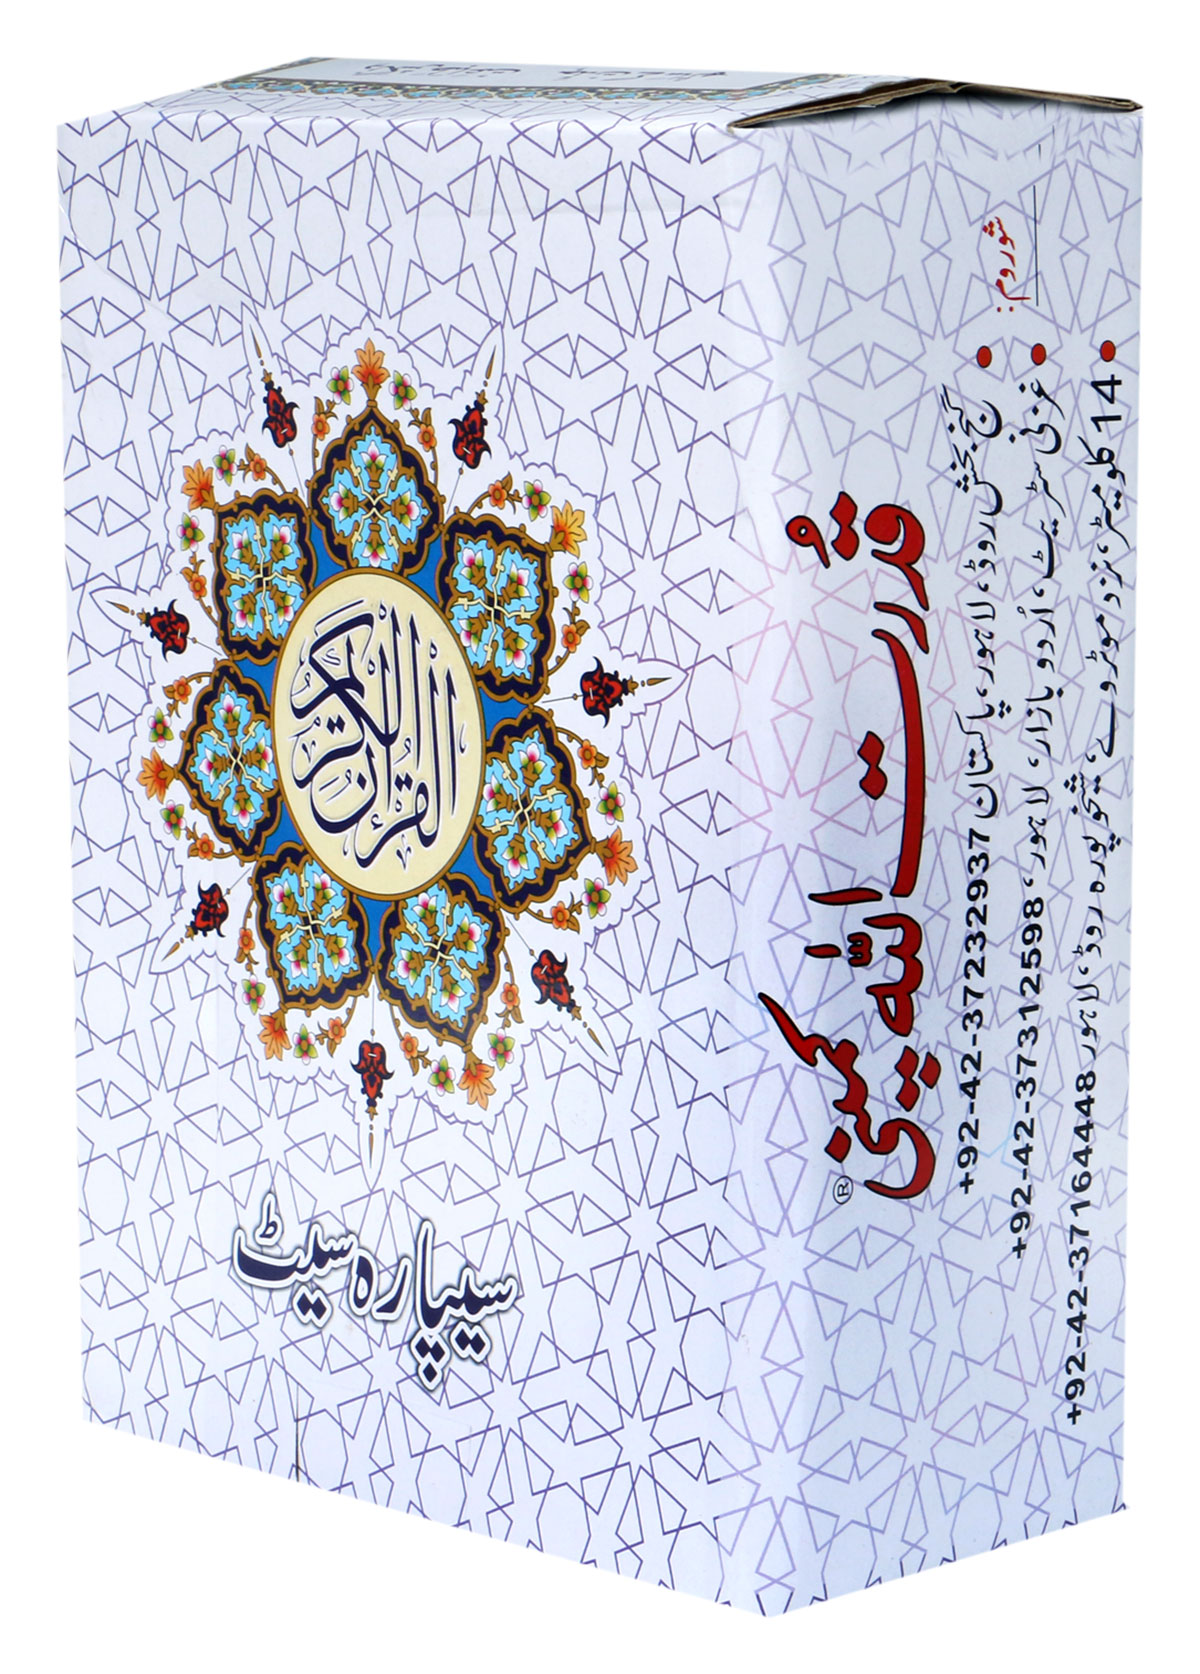 القرآن الكريم
سیپارہ سیٹ
قدرت اللہ کمپنی ®
شوروم:
● گنج بخش روڈ، لاہور، پاکستان +92-42-37232937
● غزنی سٹریٹ، اُردو بازار، لاہور، +92-42-37312598
● 14 کلومیٹر، نزد موٹروے، شیخوپورہ روڈ، لاہور +92-42-37164448